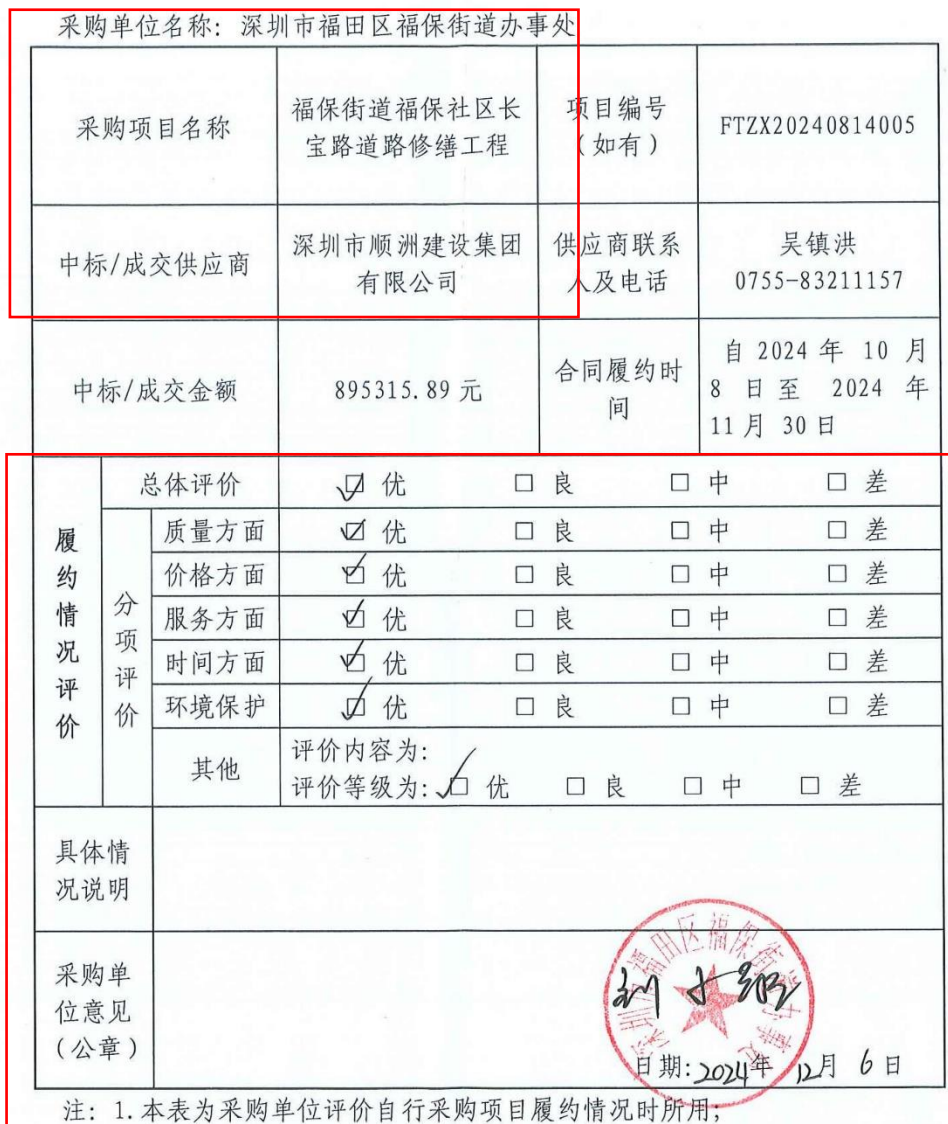 采购单位名称: 深圳市福田区福保街道办事处
采购项目名称
福保街道福保社区长
宝路道路修缮工程
项目编号
(如有)
FTZX20240814005
中标/成交供应商
深圳市顺洲建设集团
有限公司
供应商联系
人及电话
吴镇洪
0755-83211157
中标/成交金额
895315.89 元
合同履约时
间
自 2024 年 10 月
8 日至 2024 年
11 月 30 日
履约情况评价
总体评价 ☑ 优 □ 良 □ 中 □ 差
分项评价
质量方面 ☑ 优 □ 良 □ 中 □ 差
价格方面 ☑ 优 □ 良 □ 中 □ 差
服务方面 ☑ 优 □ 良 □ 中 □ 差
时间方面 ☑ 优 □ 良 □ 中 □ 差
环境保护 ☑ 优 □ 良 □ 中 □ 差
其他
评价内容为:
评价等级为: ☑ 优 □ 良 □ 中 □ 差
具体情
况说明
采购单
位意见
(公章)
深圳市福田区福保街道办事处
日期: 2024年 12月 6 日
注: 1.本表为采购单位评价自行采购项目履约情况时所用;